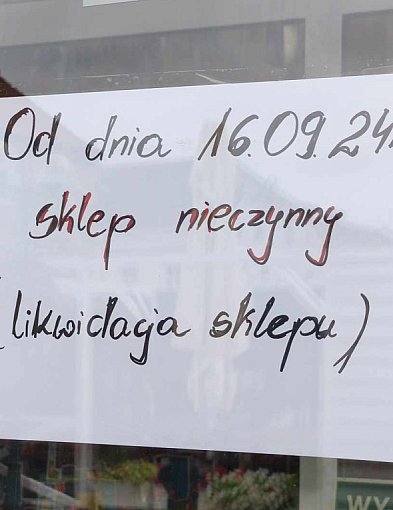 Od dnia 16.09.24r
sklep nieczynny
(likwidacja sklepu)
WY